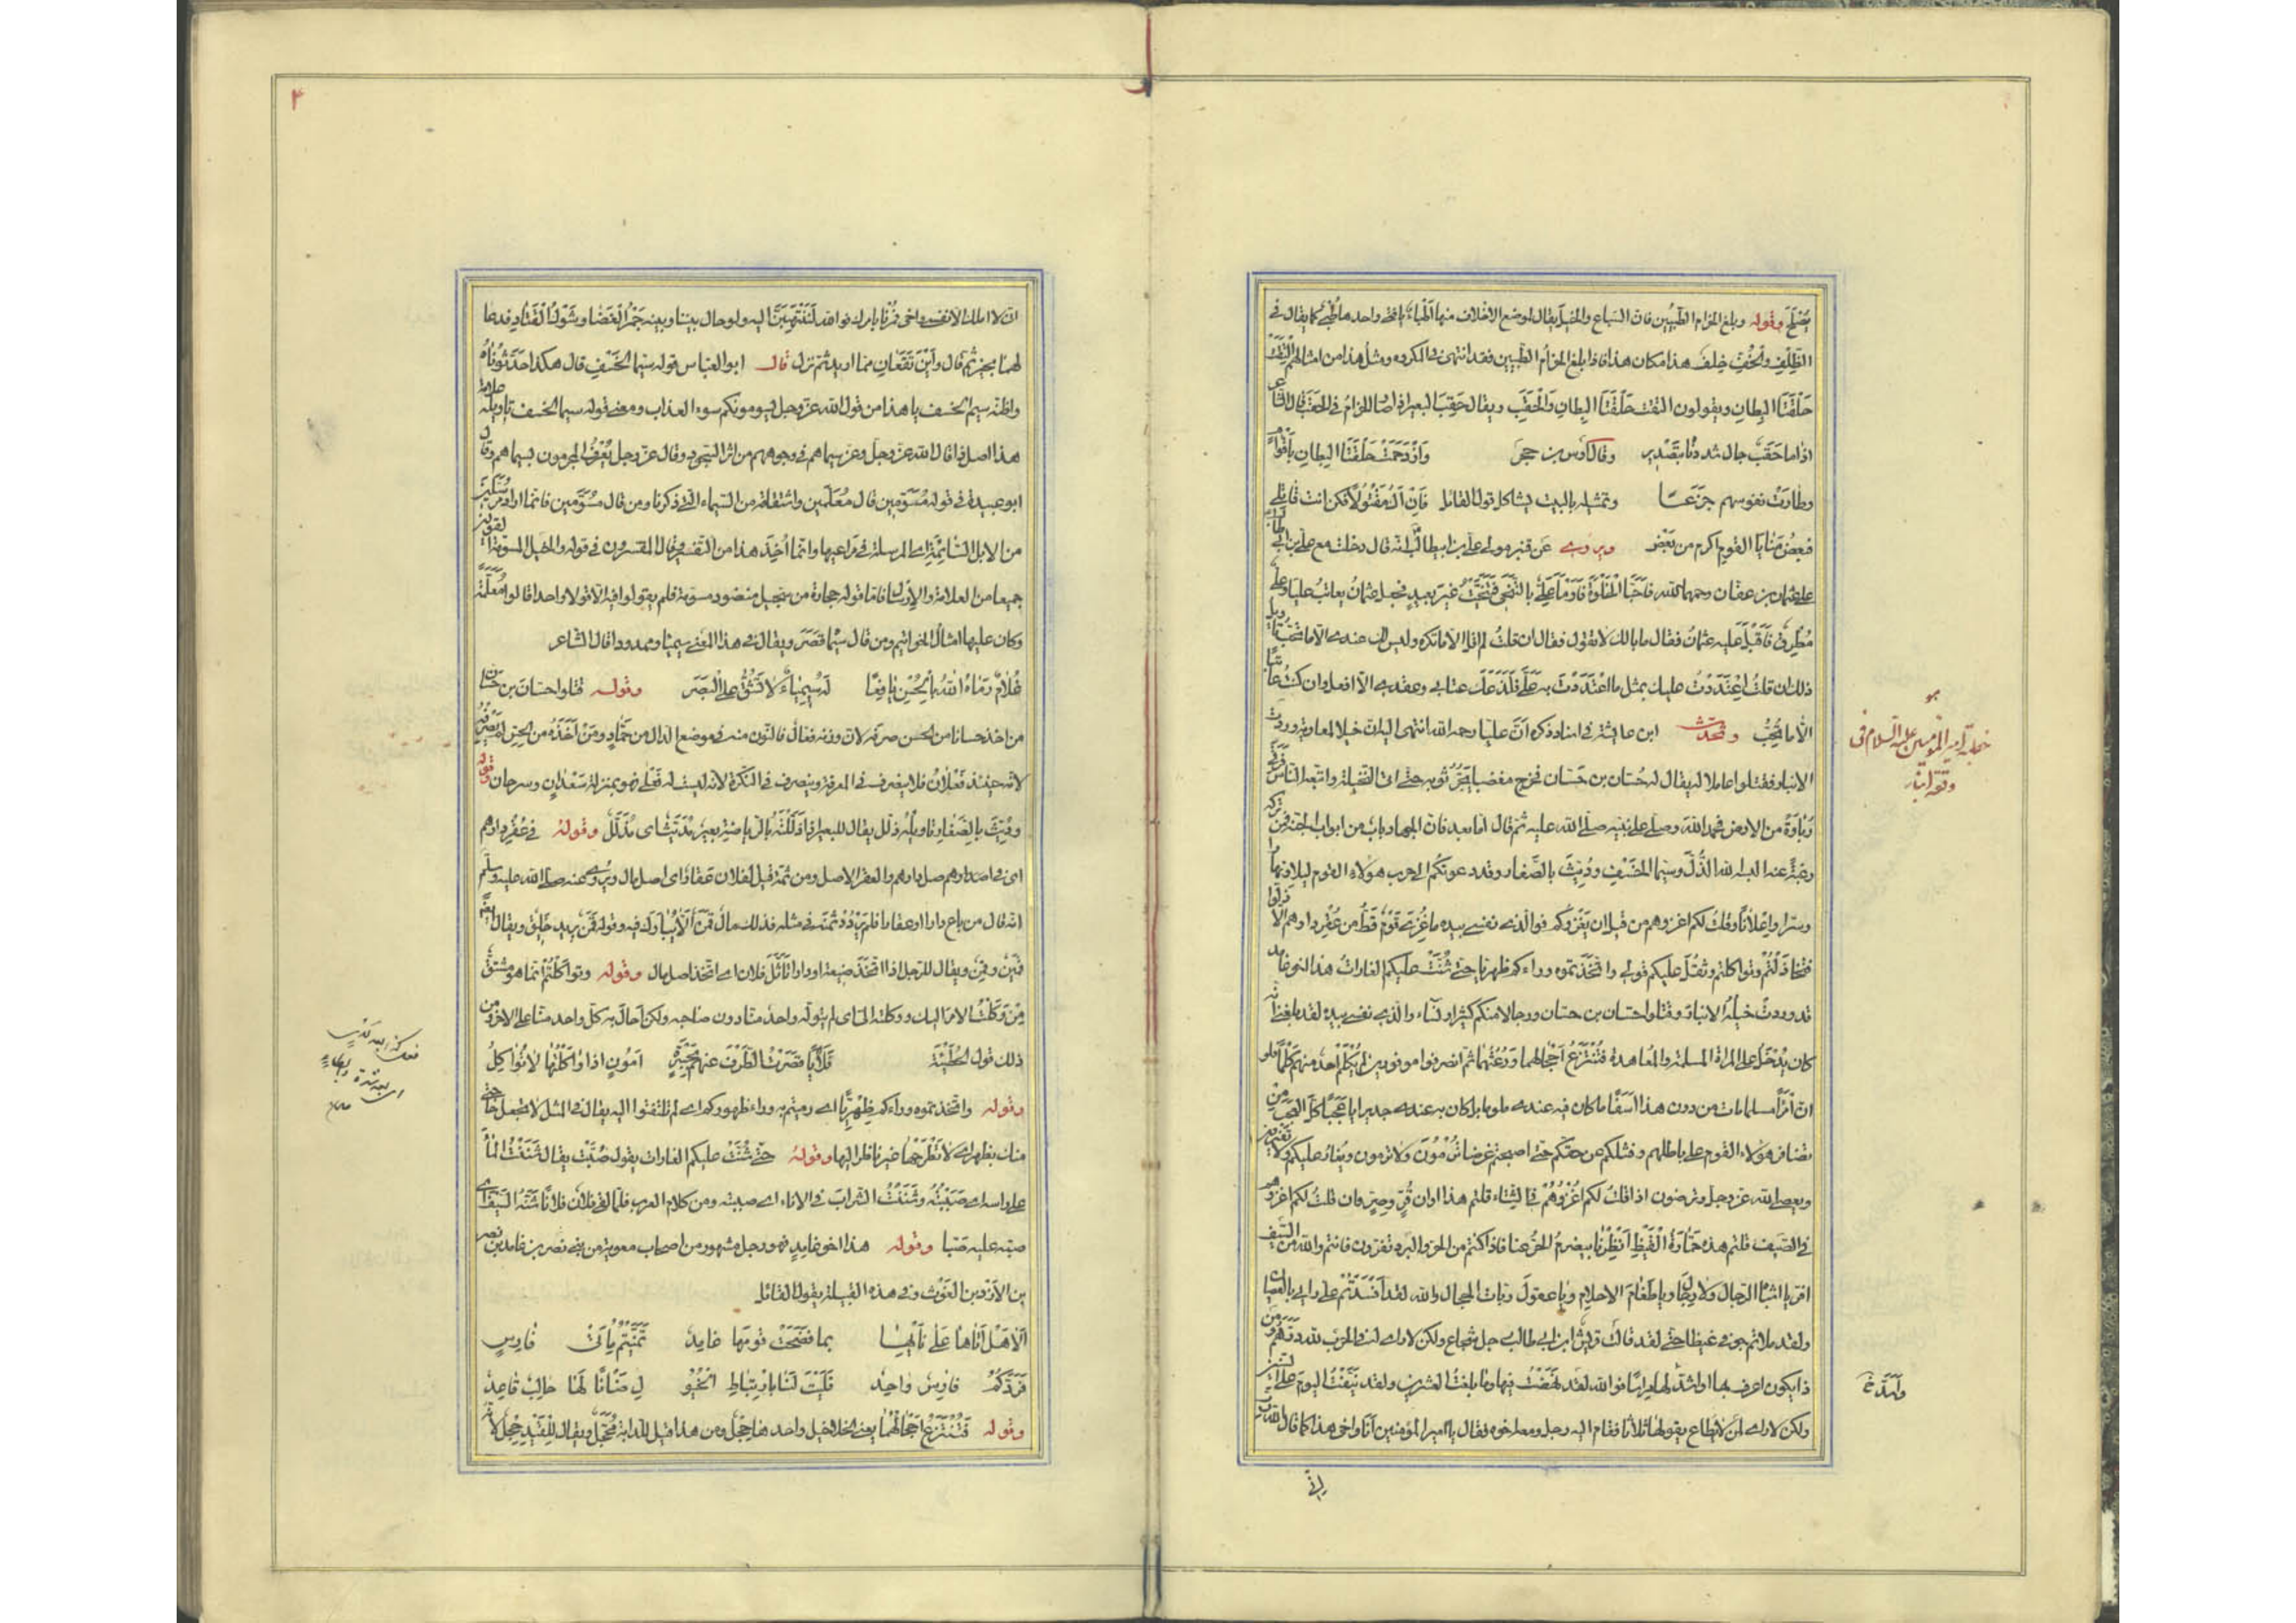 يصلح وقوله وبلغ الحزام الطبيين فان السباع والخيل يقال لموضع الاخلاف منها اطباء يا فتى واحدها طبى كما يقال فى
الظلف والخف خلف هذا مكان هذا فاذا بلغ الحزام الطبيين فقد انتهى فى المكروه ومثل هذا من امثالهم التقت
حلقتا البطان ويقولون التقت حلقتا البطان والحقب ويقال حقب البعير اذا صار الحزام فى الحقب قال الشاعر
اذا ما حقب جال شددناه بتصدير وقال اوس بن حجر وازدحمت حلقتا البطان باقوام
وطارت نفوسهم جزعا وتمثيله بالبيت يشاكل قول القائل فان اك مقتولا فكن انت قاتلى
فبعض منايا القوم اكرم من بعض ويروى عن قنبر مولى على بن ابيطالب انه قال دخلت مع على بن ابى طالب
على عثمان بن عفان رحمهما الله فاحبا الخلوة فاومأ على بالتنحى فتنحيت غير بعيد فجعل عثمان يعاتب عليا وعلى
مطرق فاقبل عليه عثمان فقال ما بالك لا تقول فقال ان قلت لم اقل الا ما تكره وليس لك عندى الا ما تحب تاويل
ذلك ان قلت اعتددت عليك بمثل ما اعتددت به على فلذعك عتابى وعقدى الا افعل وان كنت عاتبا
الا ما تحب وتحدث ابن عايشة فى اسناد ذكره ان عليا رحمه الله انتهى اليه ان خيلا لمعاوية وردت
الانبار فقتلوا عاملا له يقال له حسان بن حسان فخرج مغضبا يجر ثوبه حتى اتى النخيلة واتبعه الناس فرقى
رباوة من الارض فحمد الله وصلى على نبيه صلى الله عليه ثم قال اما بعد فان الجهاد باب من ابواب الجنة فمن تركه
رغبة عنه البسه الله الذل وسيما الخسف وديث بالصغار وقد دعوتكم الى حرب هؤلاء القوم ليلا ونهارا
وسرا واعلانا وقلت لكم اغزوهم من قبل ان يغزوكم فوالذى نفسى بيده ما غزى قوم قط من عقر دارهم الا ذلوا
فتخاذلتم وتواكلتم وثقل عليكم قولى واتخذتموه وراءكم ظهريا حتى شنت عليكم الغارات هذا اخو غامد
قد وردت خيله الانبار وقتلوا حسان بن حسان ورجالا منكم كثيرا ونساء والذى نفسى بيده لقد بلغنى انه
كان يدخل على المراة المسلمة والمعاهدة فتنتزع احجالهما ورعثهما ثم انصرفوا موفورين لم يكلم احد منهم كلما فلو
ان امرأ مسلما مات من دون هذا اسفا ما كان فيه عندى ملوما بل كان به عندى جديرا يا عجبا كل العجب من
تضافر هؤلاء القوم على باطلهم وفشلكم عن حقكم حتى اصبحتم غرضا ترمون ولا ترمون ويغار عليكم ولا تغيرون
ويعصى الله عز وجل وترضون اذا قلت لكم اغزوهم فى الشتاء قلتم هذا اوان قر وصر وان قلت لكم اغزوهم
فى الصيف قلتم هذه حمارة القيظ انظرنا ينصرم الحر عنا فاذا كنتم من الحر والبرد تفرون فانتم والله من السيف
افر يا اشباه الرجال ولا رجال ويا طغام الاحلام ويا عقول ربات الحجال والله لقد افسدتم على رايى بالعصيان
ولقد ملاتم جوفى غيظا حتى لقد قالت قريش ابن ابى طالب رجل شجاع ولكن لا راى له فى الحرب لله درهم ومن
ذا يكون اعرف بها او اشد لها مراسا فوالله لقد نهضت فيها وما بلغت العشرين ولقد نيفت اليوم على الستين
ولكن لا راى لمن لا يطاع يقولها ثلاثا فقام اليه رجل ومعه اخوه فقال يا امير المؤمنين انا واخى هذا كما قال الله
خطبة امير المؤمنين عليه السلام فى
وقعة انبار
انى
۴
ان لا املك الا نفسى واخى فمرنا بامرك فوالله لننتهين اليه ولو حال بيننا وبينه جمر الغضا وشوك القتاد فدعا
لهما بخير ثم قال واين تقعان مما اريد ثم نزل قال ابو العباس قوله سيما الخسف قال هكذا حدثوناه
واظنه سيم الخسف يا هذا من قول الله عز وجل يسومونكم سوء العذاب ومعنى قوله سيما الخسف تاويله علامة
هذا اصل ذا قال الله عز وجل سيماهم فى وجوههم من اثر السجود وقال عز وجل يعرف المجرمون بسيماهم وقال
ابو عبيدة فى قوله مسومين قال معلمين واشتقاقه من السيماء التى ذكرنا ومن قال مسومين فانما اراد مرسلين
من الابل السائمة اى المرسلة فى مراعيها وانما اخذ هذا من التفسير قال المفسرون فى قوله والخيل المسومة القولين
جميعا من العلامة والارسال فاما قوله حجارة من سجيل منضود مسومة فلم يقولوا فيه الا قولا واحدا قالوا معلمة
وكان عليها امثال الخواتيم ومن قال سيما قصر ويقال فى هذا المعنى سيمياء ممدود قال الشاعر
غلام رماه الله بالحسن يافعا له سيمياء لا تشق على البصر وقوله قتلوا حسان بن حسان
من اخذ حسانا من الحسن صرفه لان وزنه فعال فالنون منه فى موضع الدال من حماد ومن اخذه من الحس لم يصرفه
لانه حينئذ فعلان فلا ينصرف فى المعرفة وينصرف فى النكرة لانه ليست له فعلى فهو بمنزلة سعدان وسرحان وقوله
وديث بالصغار تاويله ذلل يقال للبعير اذا ذللته بالرياضة بعير مديث اى مذلل وقوله فى عقر دارهم
اى فى اصل دارهم والعقر الاصل ومن ثمة قيل لفلان عقار اى اصل مال ويروى عنه صلى الله عليه وسلم
انه قال من باع دارا او عقارا فلم يردد ثمنه فى مثله فذلك مال قمن الا يبارك فيه وقوله قمن يريد خليق ويقال ايضا
قمين وقمن ويقال للرجل اذا اتخذ ضيعة او دارا تأثل فلان اى اتخذ اصل مال وقوله وتواكلتم انما هو مشتق
من وكلت الامر اليك ووكلته الى اى لم يتوله واحد منا دون صاحبه ولكن احال به كل واحد منا على الاخر ومن
ذلك قول الحطيئة فلأيا قصرت الطرف عنهم بجسرة امون اذا واكلتها لا تواكل
وقوله واتخذتموه وراءكم ظهريا اى رميتم به وراء ظهوركم اى لم تلتفتوا اليه يقال فى المثل لا تجعل حاجتى
منك بظهر اى لا تطرحها غير ناظر اليها وقوله حتى شنت عليكم الغارات يقول صبت يقال شننت الماء
على راسه اى صببته وشننت الشراب فى الاناء اى صببته ومن كلام العرب فلما لقى فلان فلانا شنه السيف اى
صبه عليه صبا وقوله هذا اخو غامد فهو رجل مشهور من اصحاب معوية من بنى نصر بن غامد بن نصر
بن الازد بن الغوث وفى هذه القبيلة يقول القائل
الا هل اتاها على نأيها بما فضحت قومها غامد تمنيتم مأتى فارس
فردكم فارس واحد فليت لنا بارتباط الخيول ضانا لها حالب قاعد
وقوله فتنتزع احجالهما يعنى الخلاخيل واحدها حجل ومن هذا قيل للدابة محجل ويقال للقيد حجل لانه